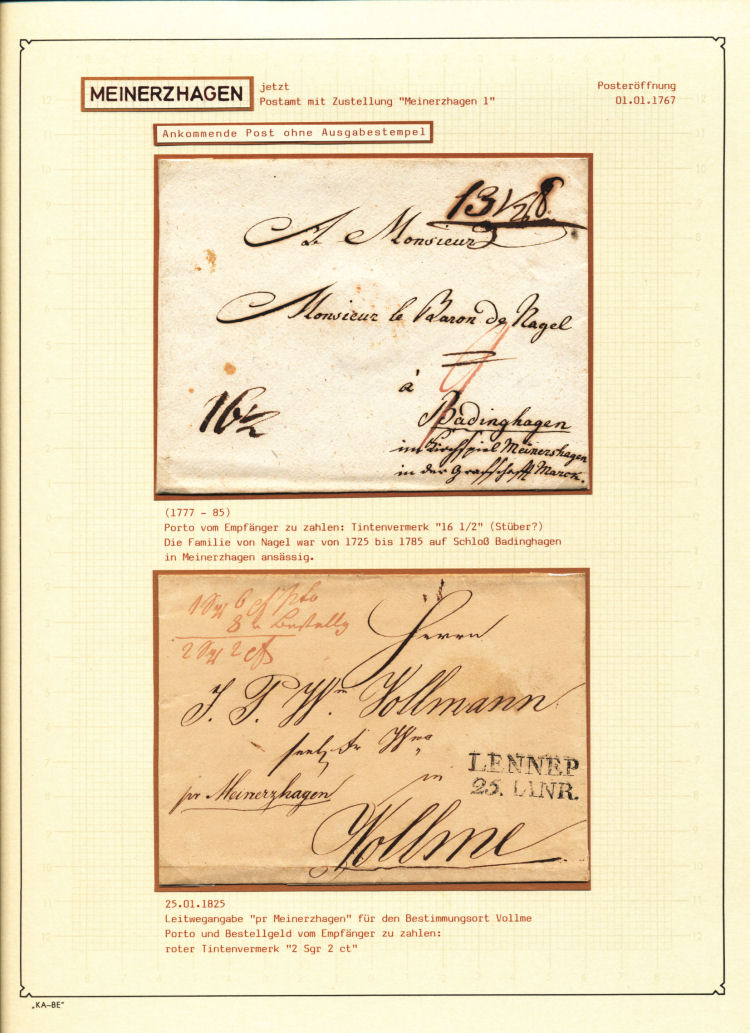 MEINERZHAGEN
jetzt
Postamt mit Zustellung "Meinerzhagen 1"
Posteröffnung
01.01.1767
Ankommende Post ohne Ausgabestempel
13 1/2
A Monsieur
Monsieur le Baron de Nagel
à
16 1/2
Badinghagen
im Kirchspiel Meinershagen
in der Grafschafft Marck.
(1777 - 85)
Porto vom Empfänger zu zahlen: Tintenvermerk "16 1/2" (Stüber?)
Die Familie von Nagel war von 1725 bis 1785 auf Schloß Badinghagen
in Meinerzhagen ansässig.
1 Sgr 6 Pto
8 Bestellg
2 Sgr 2
Herrn
J. P. Wm. Vollmann
seel. Wwe
LENNEP
25. IANR.
in
pr Meinerzhagen
Vollme
25.01.1825
Leitwegangabe "pr Meinerzhagen" für den Bestimmungsort Vollme
Porto und Bestellgeld vom Empfänger zu zahlen:
roter Tintenvermerk "2 Sgr 2 ct"
„KA–BE"